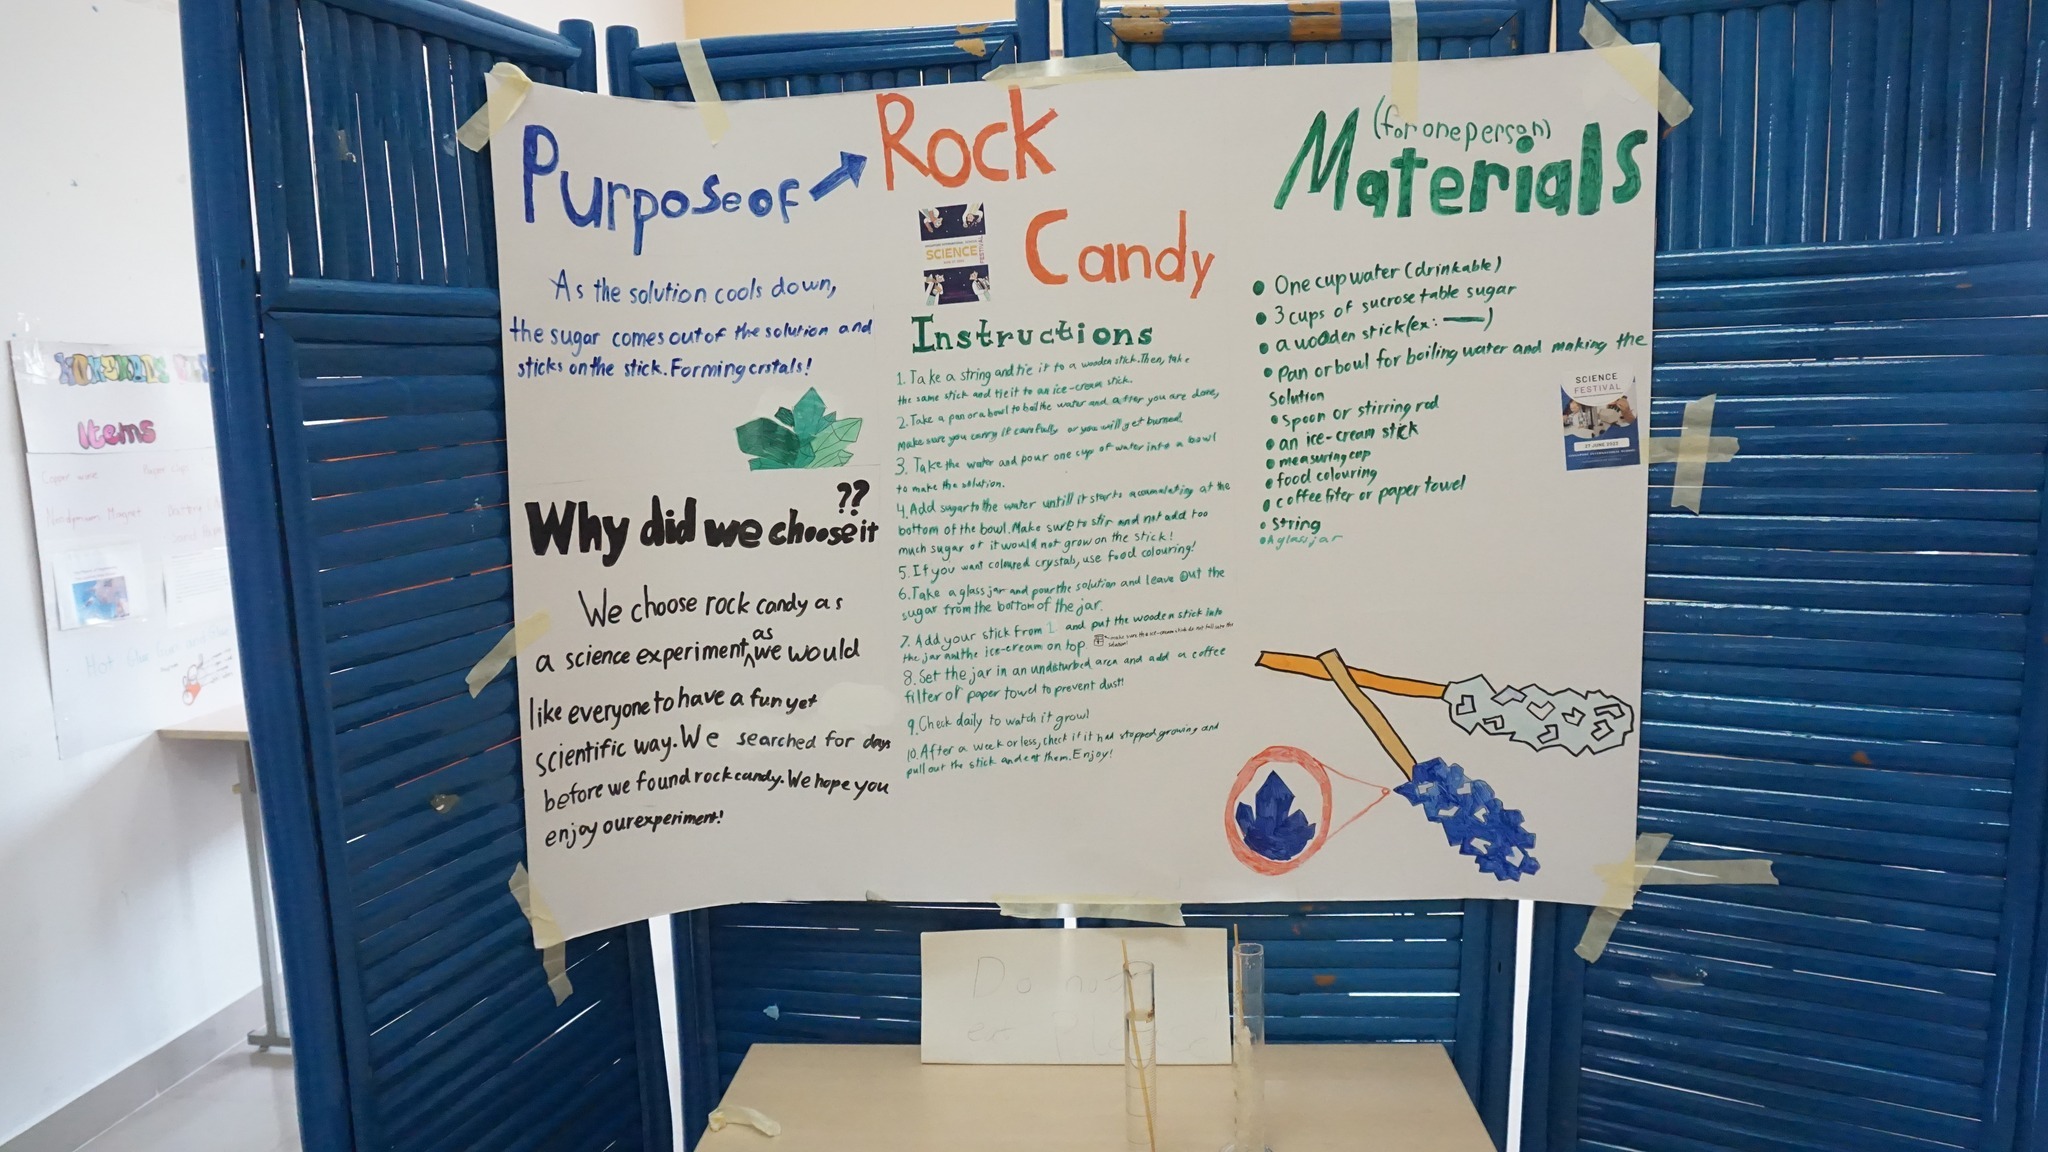 Purpose of
Rock
Candy
As the solution cools down,
the sugar comes out of the solution and
sticks on the stick. Forming crstals!
Why did we choose it
??
We choose rock candy as
a science experiment, as we would
like everyone to have a fun yet
scientific way. We searched for days
before we found rock candy. We hope you
enjoy our experiment!
SCIENCE
FESTIVAL
Instructions
1. Take a string and tie it to a wooden stick. Then, take
the same stick and tie it to an ice-cream stick.
2. Take a pan or a bowl to boil the water and after you are done,
make sure you carry it carefully or you will get burned.
3. Take the water and pour one cup of water into a bowl
to make the solution.
4. Add sugar to the water untill it starts accumalating at the
bottom of the bowl. Make sure to stir and not add too
much sugar or it would not grow on the stick!
5. If you want coloured crystals, use food colouring!
6. Take a glass jar and pour the solution and leave out the
sugar from the bottom of the jar.
7. Add your stick from 1 and put the wooden stick into
the jar and the ice-cream on top
8. Set the jar in an undisturbed area and add a coffee
filter or paper towel to prevent dust!
9. Check daily to watch it grow!
10. After a week or less, check if it had stopped growing and
pull out the stick and eat them. Enjoy!
(for one person)
Materials
One cup water (drinkable)
3 cups of sucrose table sugar
a wooden stick (ex: )
Pan or bowl for boiling water and making the
Solution
spoon or stirring rod
an ice-cream stick
measuring cup
food colouring
coffee filter or paper towel
String
A glass jar
SCIENCE
FESTIVAL
27 JUNE 2022
Items
Copper wire
Neodymium Magnet
Hot Glue Gun and Glue
Do not
eat Please